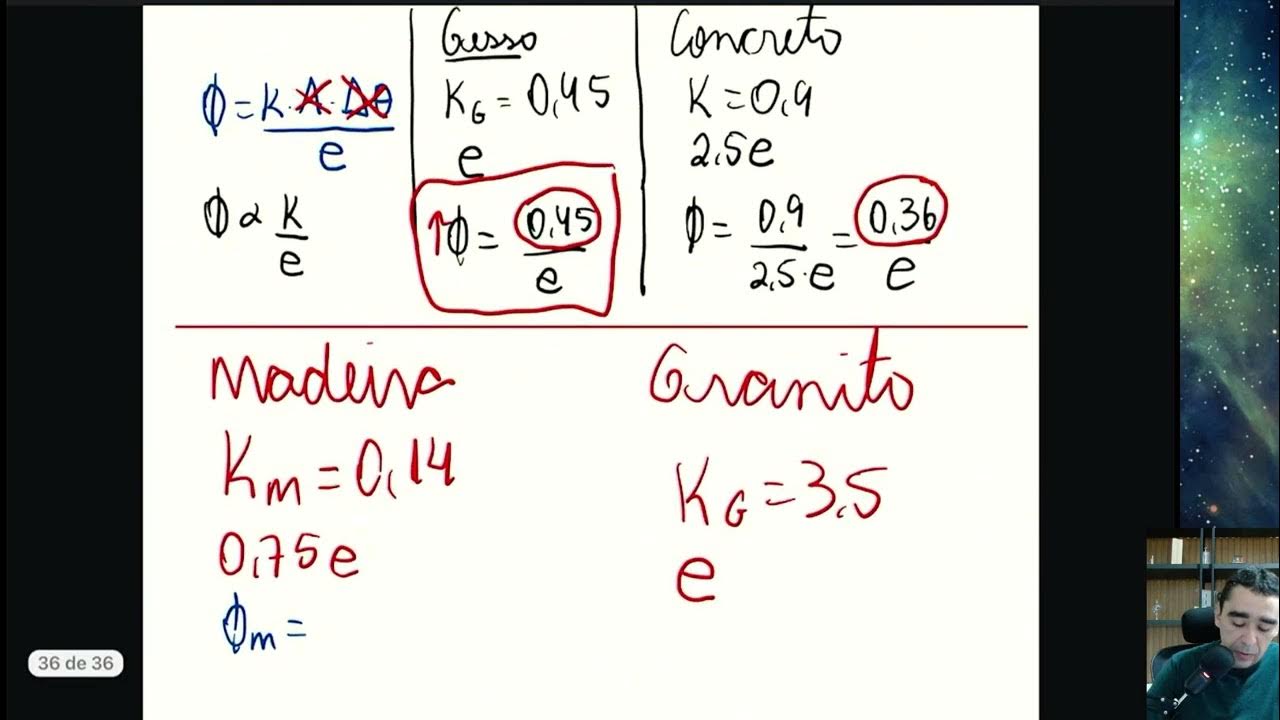 ϕ = K·A·Δθ
e
ϕ α K
e
Gesso
K_G = 0,45
e
↑ϕ = 0,45
e
Concreto
K = 0,9
2,5e
ϕ = 0,9 = 0,36
2,5·e e
Madeira
K_m = 0,14
0,75e
ϕ_m =
Granito
K_G = 3,5
e
36 de 36